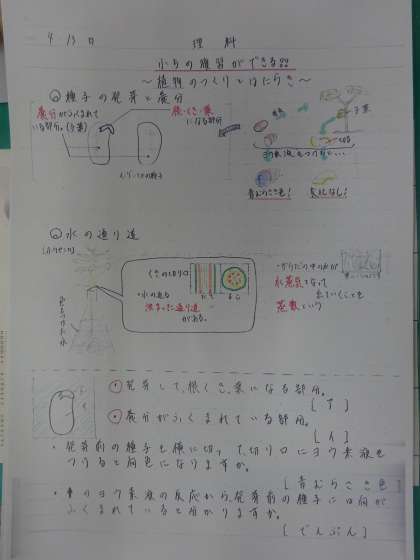 4.13日 理科
小5の復習ができる
～植物のつくりとはたらき～
種子の発芽と養分
養分がふくまれて
いる部分。(子葉)
根・くき・葉
になる部分
インゲンマメの種子
子葉
ヨウ素液をつけると…
青むらさき色!
変化なし!
水の通り道
(ホウセンカ)
色をつけた水
くきの切り口
たて
よこ
・水の通る
決まった通り道
がある。
・からだの中の水が
水蒸気となって
出ていくことを
蒸散という
発芽して、根、くき、葉になる部分。
[ア]
養分がふくまれている部分。
[イ]
・発芽前の種子を横に切って、切り口にヨウ素液を
つけると何色になりますか。
[青むらさき色]
のヨウ素液の反応から、発芽前の種子には何が
ふくまれていると分かりますか。
[でんぷん]